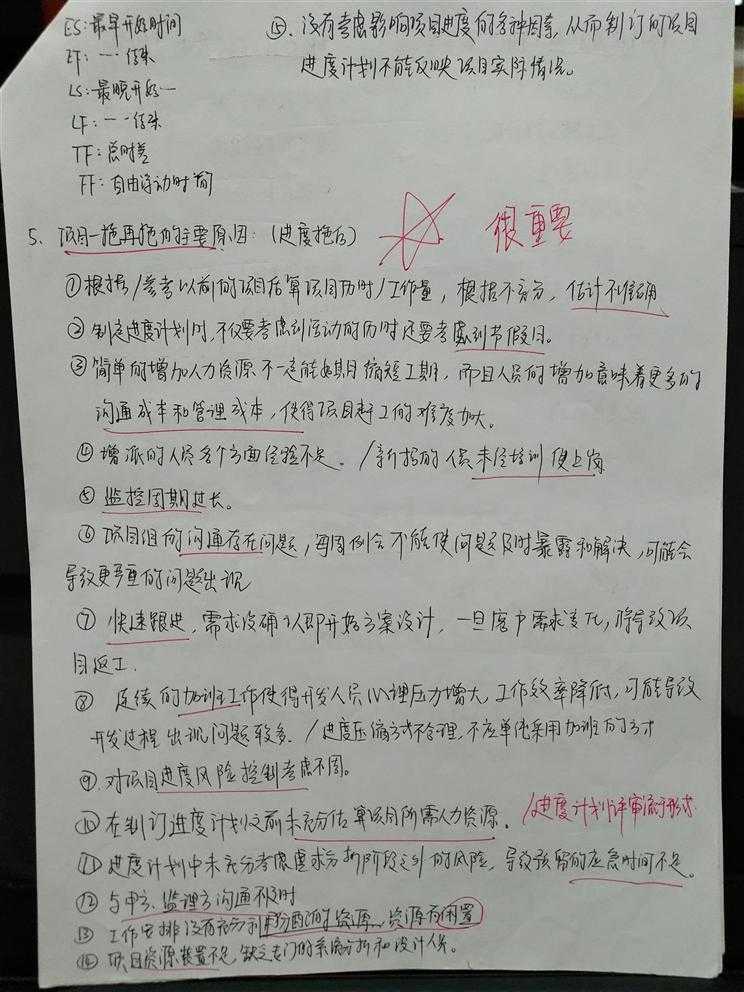 ES：最早开始时间
EF：一·结束
LS：最晚开始一
LF：一·一结束
TF：总时差
FF：自由浮动时间
⑮、没有考虑影响项目进度的各种因素，从而制订的项目
进度计划不能反映项目实际情况。
5、项目一拖再拖的主要原因：（进度拖后）
很重要
①根据/参考以前的项目估算项目历时/工作量，根据不充分，估计不准确
②制定进度计划时，不仅要考虑到活动的历时还要考虑到节假日。
③简单的增加人力资源不一定能如期缩短工期，而且人员的增加意味着更多的
沟通成本和管理成本，使得项目赶工的难度加大。
④增派的人员各个方面经验不足。/新招的人员未经培训便上岗
⑤监控周期过长。
⑥项目组的沟通存在问题，每周例会不能使问题及时暴露和解决，可能会
导致更严重的问题出现
⑦快速跟进，需求没确认即开始方案设计，一旦客户需求变化，将导致项
目返工.
⑧连续的加班工作使得开发人员心理压力增大，工作效率降低，可能导致
开发过程出现问题较多./进度压缩方式不合理，不应单纯采用加班的方式
⑨对项目进度风险控制考虑不周。
⑩在制订进度计划之前未充分估算项目所需人力资源. /进度计划评审流于形式
⑪进度计划中未充分考虑需求分析阶段之外的风险，导致预留的应急时间不足。
⑫与甲方、监理方沟通不及时
⑬工作安排没有充分利用分配的资源、资源有闲置
⑭项目资源装置不足，缺乏专门的系统分析和设计人员。